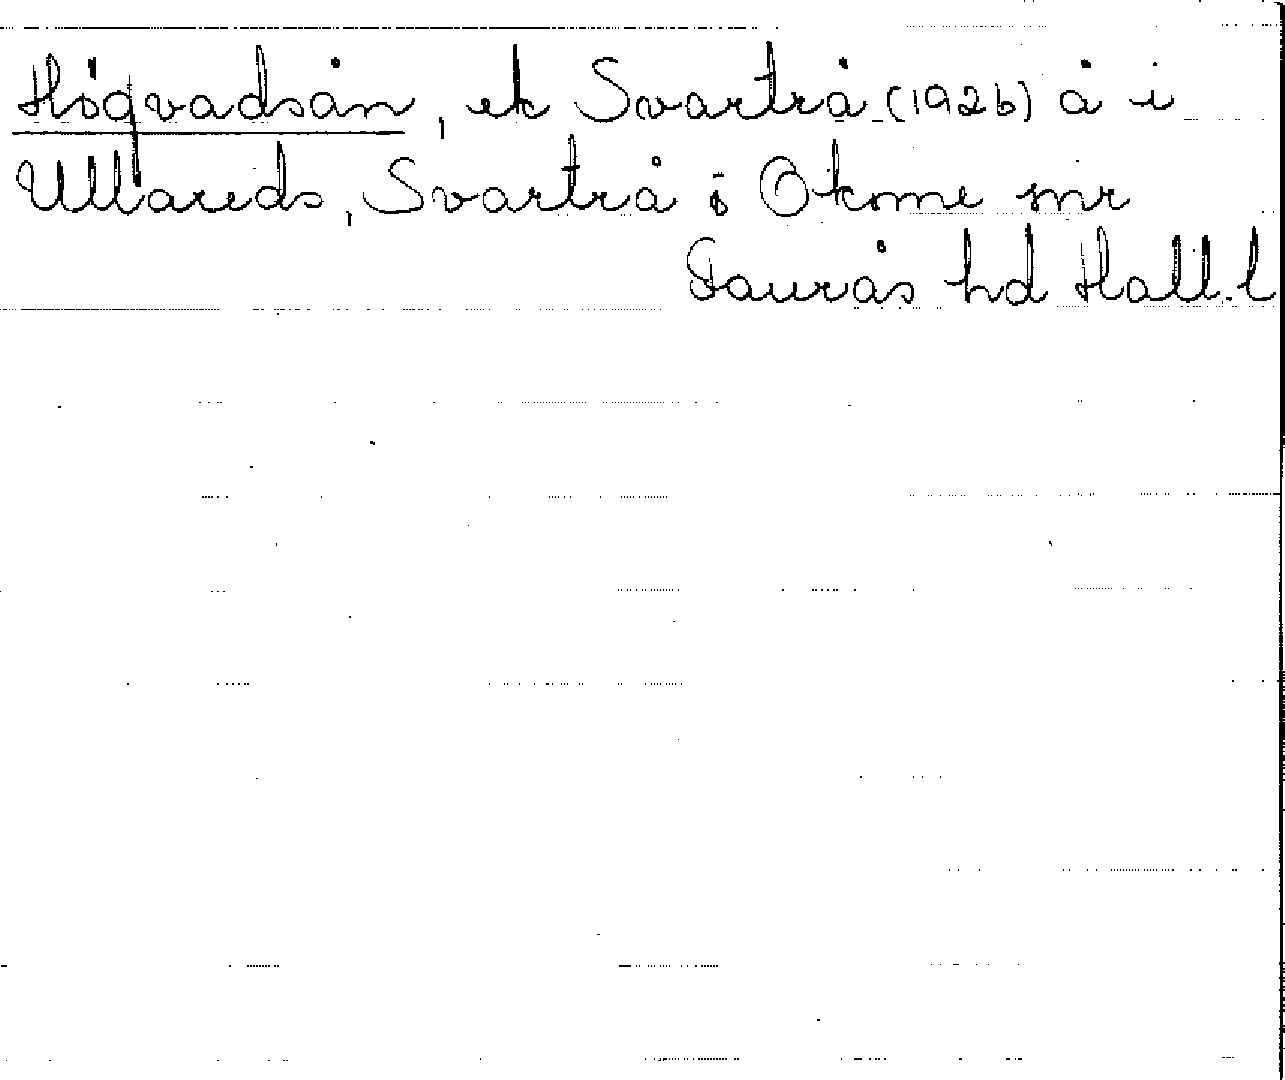 Högvadsån, ek Svartrå (1926) å i
Ullareds, Svartrå o Okome snr
Faurås hd Hall.l